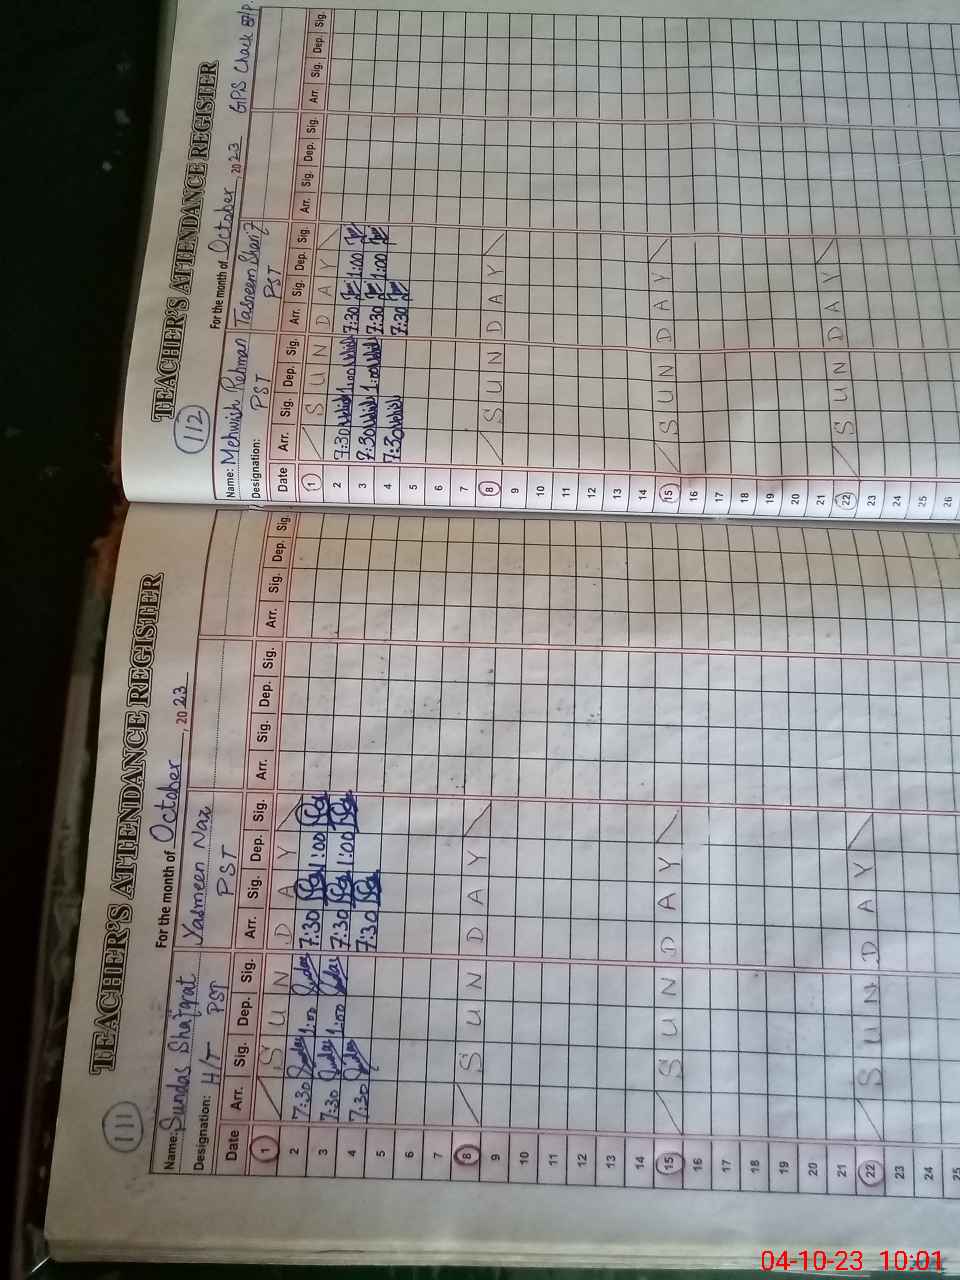 111
TEACHER'S ATTENDANCE REGISTER
For the month of October, 2023
Name: Sundas Shafqat Yasmeen Naz
Designation: H/T PST PST
Date Arr. Sig. Dep. Sig. Arr. Sig. Dep. Sig. Arr. Sig. Dep. Sig. Arr. Sig. Dep. Sig.
1 S U N D A Y
2 7:30 Sundas 1:00 Sundas 7:30 1:00
3 7:30 Sundas 1:00 Sundas 7:30 1:00
4 7:30 Sundas 7:30
5
6
7
8 S U N D A Y
9
10
11
12
13
14
15 S U N D A Y
16
17
18
19
20
21
22 S U N D A Y
23
24
25
112
TEACHER'S ATTENDANCE REGISTER
For the month of October, 2023 GPS Chack
Name: Mehwish Rehman Tasneem Sharif
Designation: PST PST
Date Arr. Sig. Dep. Sig. Arr. Sig. Dep. Sig. Arr. Sig. Dep. Sig. Arr. Sig. Dep. Sig.
1 S U N D A Y
2 7:30 1:00 7:30 1:00
3 7:30 1:00 7:30 1:00
4 7:30 7:30
5
6
7
8 S U N D A Y
9
10
11
12
13
14
15 S U N D A Y
16
17
18
19
20
21
22 S U N D A Y
23
24
25
26
04-10-23 10:01